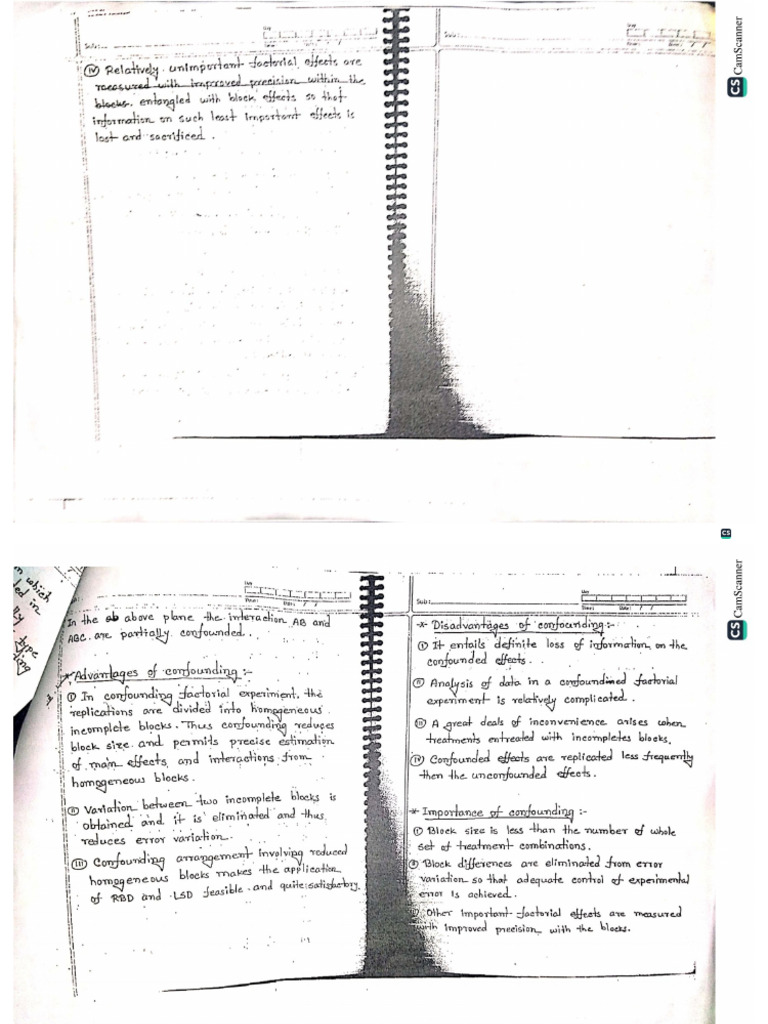 Sub:
(IV) Relatively unimportant factorial effects are
measured with improved precision within the
blocks. entangled with block effects so that
information on such least important effects is
lost and sacrificed.
Sub:
CS CamScanner
CS
In the ab above plane the interaction AB and
ABC are partially confounded.
* Advantages of confounding :-
(I) In confounding factorial experiment, the
replications are divided into homogeneous
incomplete blocks. Thus confounding reduces
block size and permits precise estimation
of main effects, and interactions from
homogneous blocks.
(II) Variation between two incomplete blocks is
obtained and it is eliminated and thus
reduces error variation.
(III) Confounding arrangement involving reduced
homogeneous blocks makes the application
of RBD and LSD feasible and quite satisfactory.
Sub:
Date: / /
* Disadvantages of confounding :-
(I) It entails definite loss of information on the
confounded effects.
(II) Analysis of data in a confoundined factorial
experiment is relatively complicated.
(III) A great deals of inconvenience arises when
treatments entreated with incompletes blocks.
(IV) Confounded effects are replicated less frequently
then the unconfounded effects.
* Importance of confounding :-
(I) Block size is less than the number of whole
set of treatment combinations.
Block differences are eliminated from error
variation so that adequate control of experimental
error is achieved.
Other Important factorial effects are measured
with improved precision with the blocks.
CS CamScanner